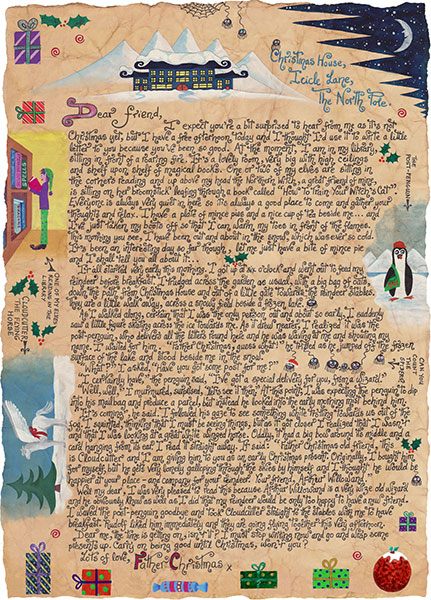 Christmas House,
Icicle Lane,
The North Pole.
Dear Friend,
I expect you're a bit surprised to hear from me as it's not
Christmas yet, but I have a free afternoon today and I thought I'd use it to write a little
letter to you because you've been so good. At the moment, I am in my library,
sitting in front of a roaring fire. It's a lovely room, very big with high ceilings
and shelf upon shelf of magical books. One or two of my elves are sitting in
the corners reading and up above my head the Northern Witch, a great friend of mine,
is sitting on her broomstick leafing through a book called 'How to Train Your Witch's Cat'.
Everyone is always very quiet in here so it's always a good place to come and gather your
thoughts and relax. I have a plate of mince pies and a nice cup of tea beside me... and
I've just taken my boots off so that I can warm my toes in front of the flames.
This morning you see, I have been out and about in the snow, which was ever so cold.
It's been an interesting day so far though, let me just have a bite of mince pie
and I shall tell you all about it...
It all started very early this morning. I got up at six o'clock and went out to feed my
reindeer before breakfast. I trudged across the garden as usual, with a big bag of oats,
down the path from Christmas House and out of a little gate towards the reindeer stables.
They are a little walk away, across a snowy field beside a frozen lake.
As I walked along, certain that I was the only person out and about so early, I suddenly
saw a little figure skating across the ice towards me. As it drew nearer, I realized it was the
post-penguin, who delivers all the letters round here and he was waving and shouting my
name. I waited for him. 'Father Christmas, wait!' he cried as he jumped off the frozen
surface of the lake and stood beside me in the snow.
'What?' I asked, 'Have you got some post for me?'
'I certainly have,' the penguin said, 'I've got a special delivery for you, from a wizard!'
'Well, well,' I muttered, surprised, 'let's see it then.' At this point, I was expecting the penguin to dip
into his mailbag and produce a parcel, but instead he looked into the early morning mist behind him.
'It's coming,' he said. I followed his gaze to see something white trotting towards us out of the
fog. I squinted, thinking that I must be seeing things, but as it got closer I realized that I wasn't
and that I was looking at a great white winged horse. Oddly, it had a big bow around its middle and a
card hanging from its ear. I read it straight away. It said: 'Father Christmas old friend, this
is Cloudcutter and I am giving him to you as an early Christmas present. Originally, I bought him
for myself, but he gets very lonely galloping through the skies by himself and I thought he would be
happier at your place - and company for your reindeer. Your friend, Arthur Willowand.'
Well my dear, I was very pleased to read this because Arthur Willowand is a very wise old wizard
and he obviously knew as well as I did that my reindeer would be only too happy to have a new friend.
I waved the post-penguin goodbye and took Cloudcutter straight to the stables with me to have
breakfast. Rudolf liked him immediately and they are going flying together this very afternoon.
Dear me, the time is getting on, isn't it? I must stop writing now and go and wrap some
presents up. Carry on being good until Christmas, won't you?
Lots of love, Father Christmas x
THE POST-PENGUIN
ONE OF MY ELVES READING IN THE LIBRARY
CLOUDCUTTER THE FLYING HORSE
CAN YOU COUNT THE SPIDERS
SPELLS